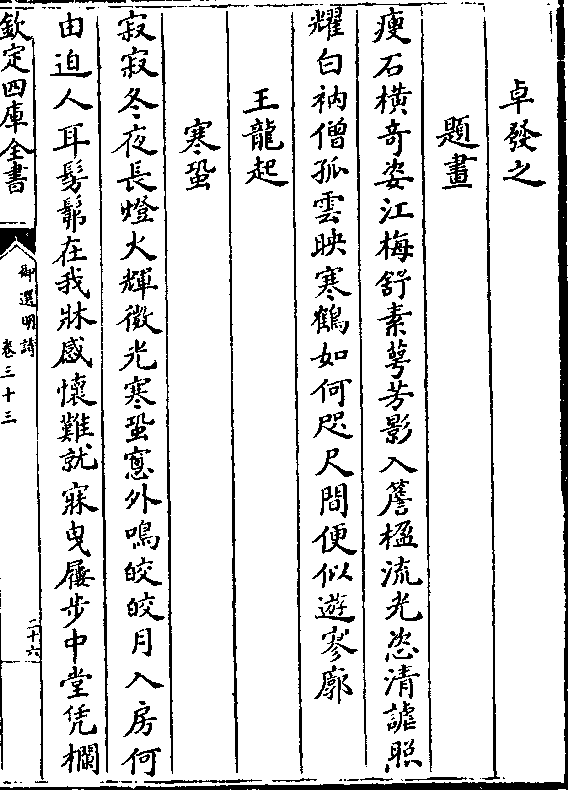 卓發之
題畫
瘦石橫奇姿江梅舒素萼芳影入簷楹流光恣清謔照
耀白衲僧孤雲映寒鶴如何咫尺間便似遊寥廓
王龍起
寒蛩
寂寂冬夜長燈火輝微光寒蛩窻外鳴皎皎月入房何
由迫人耳髣髴在我牀感懷難就寐曳屨步中堂凭欄
欽定四庫全書
御選明詩
卷三十三
二十六